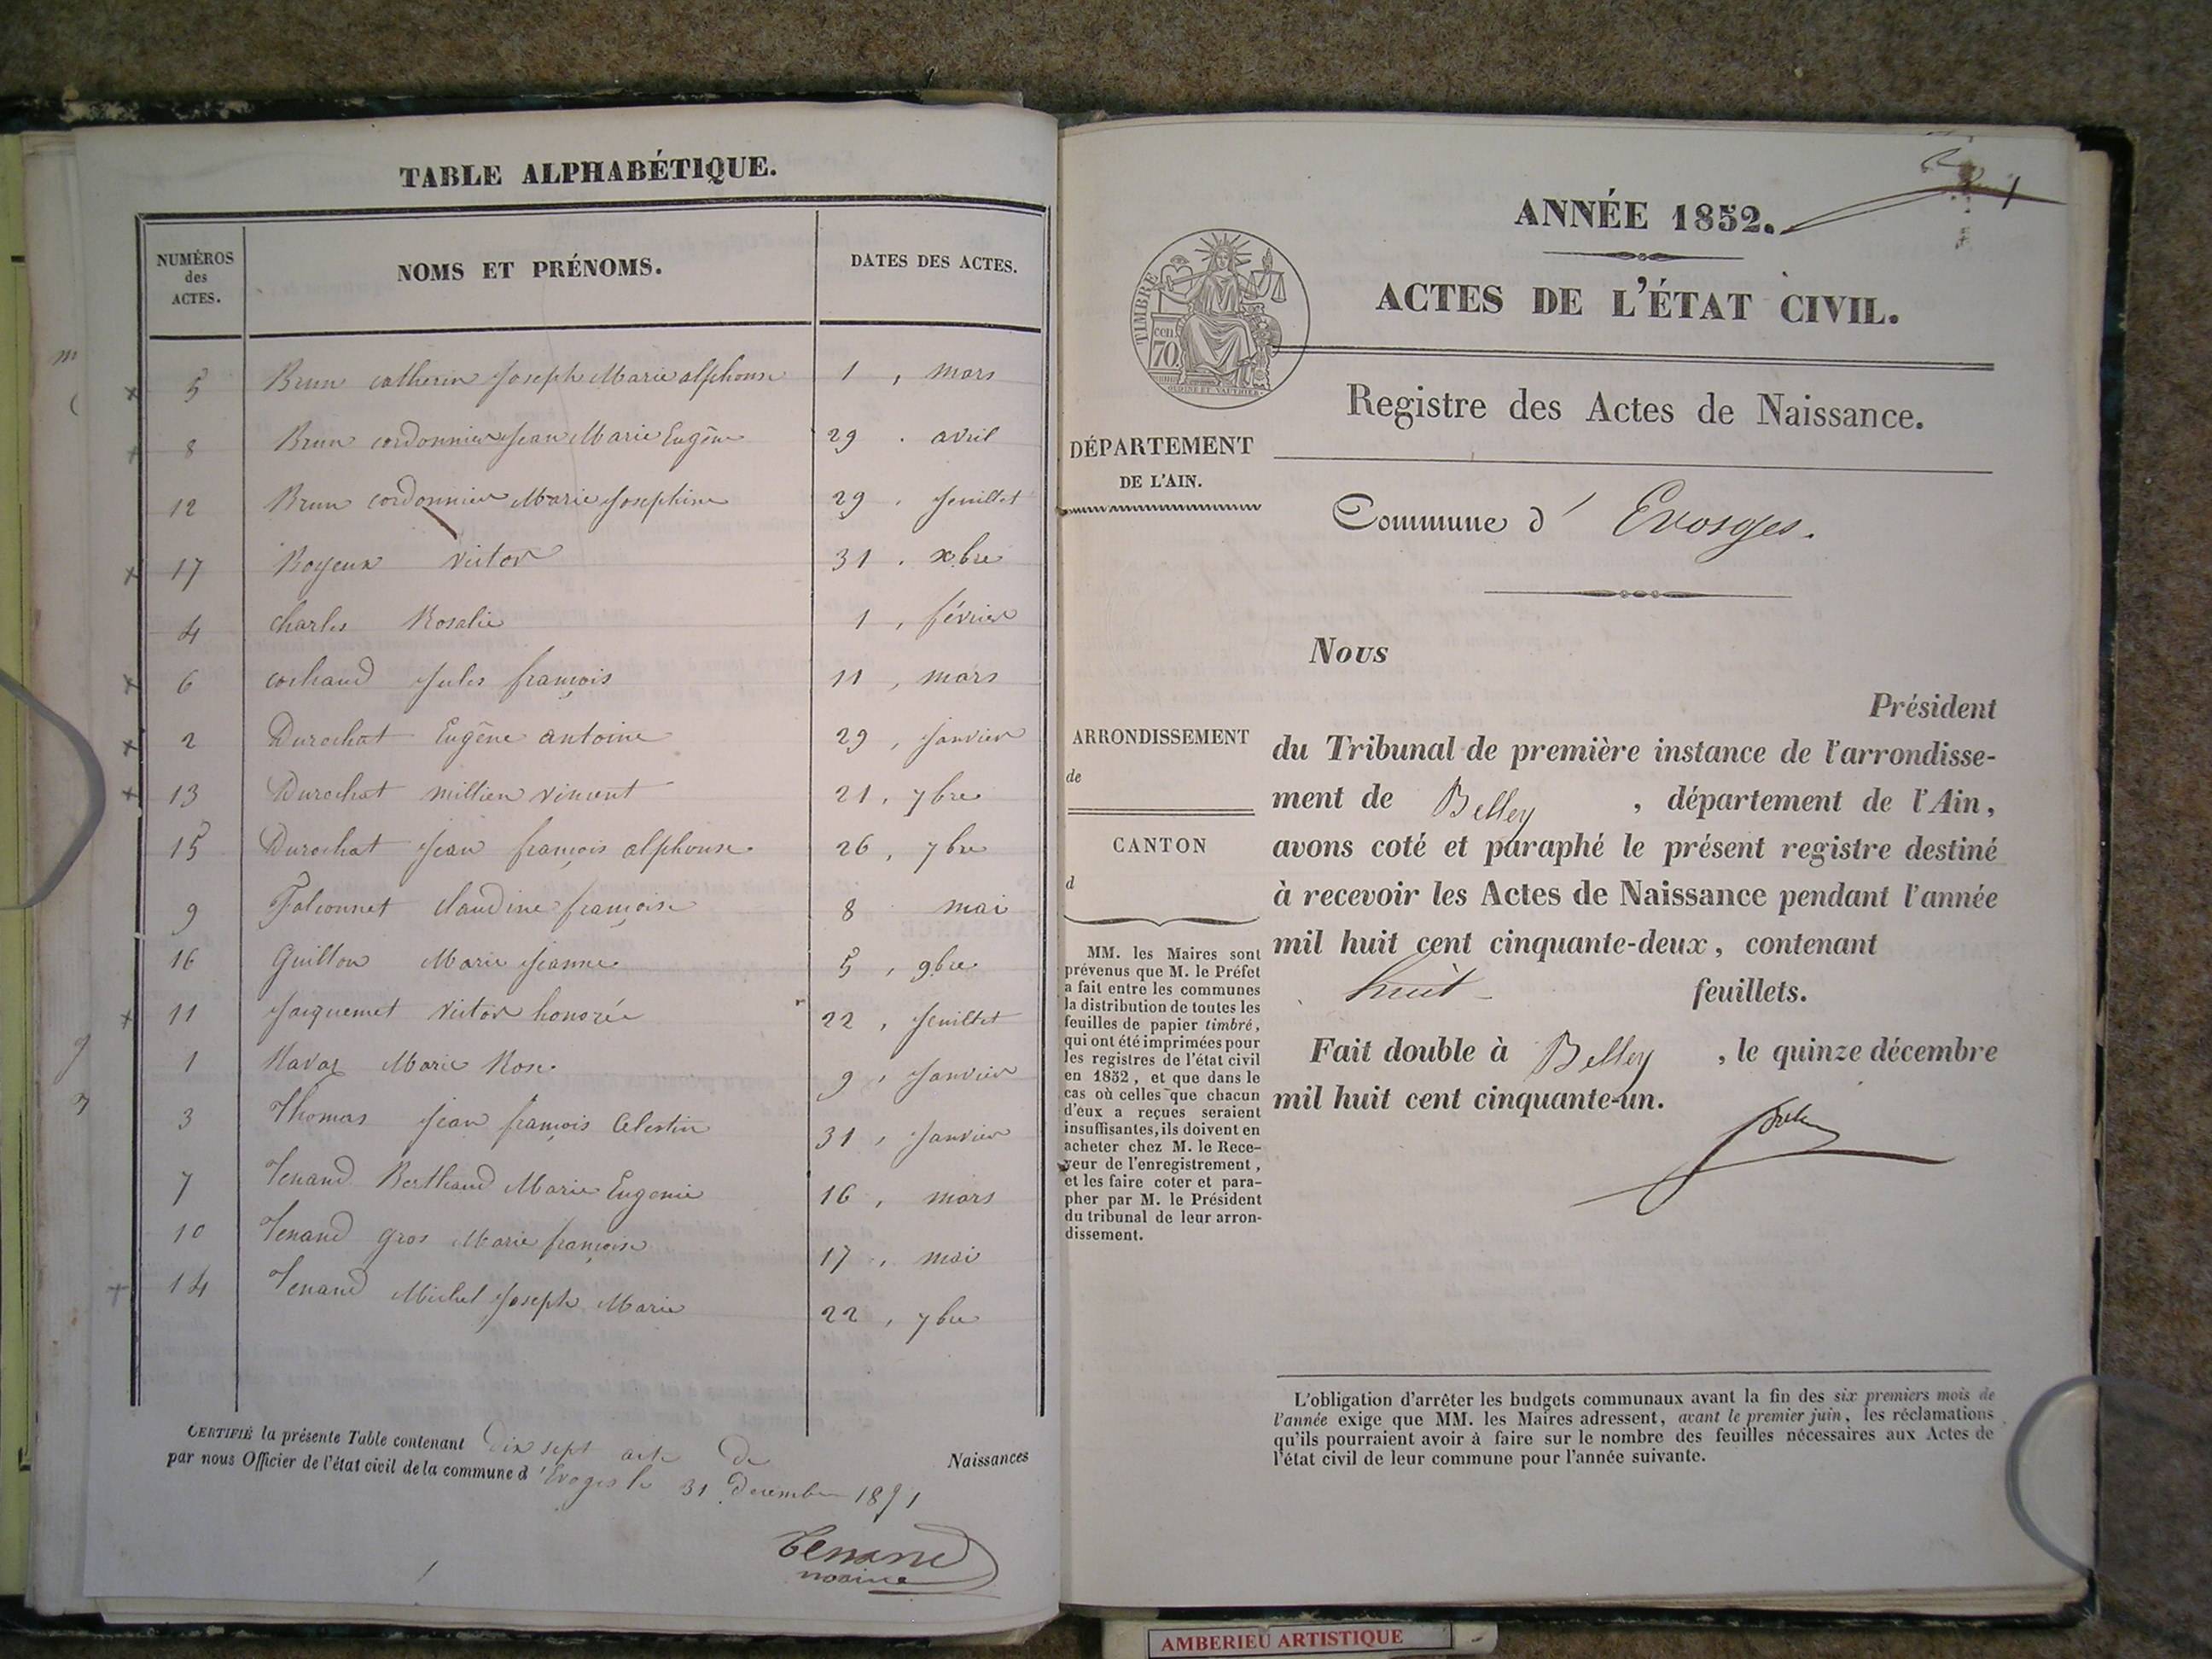 TABLE ALPHABÉTIQUE.
NUMÉROS
des
ACTES.
NOMS ET PRÉNOMS.
DATES DES ACTES.
5 Brun catherin Joseph Marie alphonse 1 , mars
8 Brun cordonnier Jean Marie Eugène 29 . avril
12 Brun cordonnier Marie Josephine 29 , Juillet
17 Royeux victor 31 . xbre
4 charles Rosalie 1 , février
6 cochaud Jules françois 11 , mars
2 Durochat Eugène antoine 29 , Janvier
13 Durochat millien vincent 21 , 7bre
15 Durochat Jean françois alphonse. 26 , 7bre
9 Falconnet claudine françoise 8 mai
16 Guillon Marie Jeanne 5 , 9bre
11 Jacquemet victor honoré 22 , Juillet
1 Ravaz Marie Rose 9 , Janvier
3 Thomas Jean françois Celestin 31 , Janvier
7 Tenand Bertheaud Marie Eugenie 16 , mars
10 Tenand gros Marie françoise 17 , mai
14 Tenand Michel Joseph Marie 22 , 7bre
CERTIFIÉ la présente Table contenant Dix sept acte de Naissances
par nous Officier de l'état civil de la commune d'Evoges le 31 Decembre 1851
Tenand
maire
ANNÉE 1852.
1
ACTES DE L'ÉTAT CIVIL.
TIMBRE
cen
70.
Registre des Actes de Naissance.
DÉPARTEMENT
DE L'AIN.
Commune d' Evosges.
ARRONDISSEMENT
de
CANTON
d
MM. les Maires sont
prévenus que M. le Préfet
a fait entre les communes
la distribution de toutes les
feuilles de papier timbré,
qui ont été imprimées pour
les registres de l'état civil
en 1852, et que dans le
cas où celles que chacun
d'eux a reçues seraient
insuffisantes, ils doivent en
acheter chez M. le Rece-
veur de l'enregistrement,
et les faire coter et para-
pher par M. le Président
du tribunal de leur arron-
dissement.
Nous
Président
du Tribunal de première instance de l'arrondisse-
ment de Belley , département de l'Ain,
avons coté et paraphé le présent registre destiné
à recevoir les Actes de Naissance pendant l'année
mil huit cent cinquante-deux, contenant
huit feuillets.
Fait double à Belley , le quinze décembre
mil huit cent cinquante-un.
L'obligation d'arrêter les budgets communaux avant la fin des six premiers mois de
l'année exige que MM. les Maires adressent, avant le premier juin, les réclamations
qu'ils pourraient avoir à faire sur le nombre des feuilles nécessaires aux Actes de
l'état civil de leur commune pour l'année suivante.
AMBERIEU ARTISTIQUE